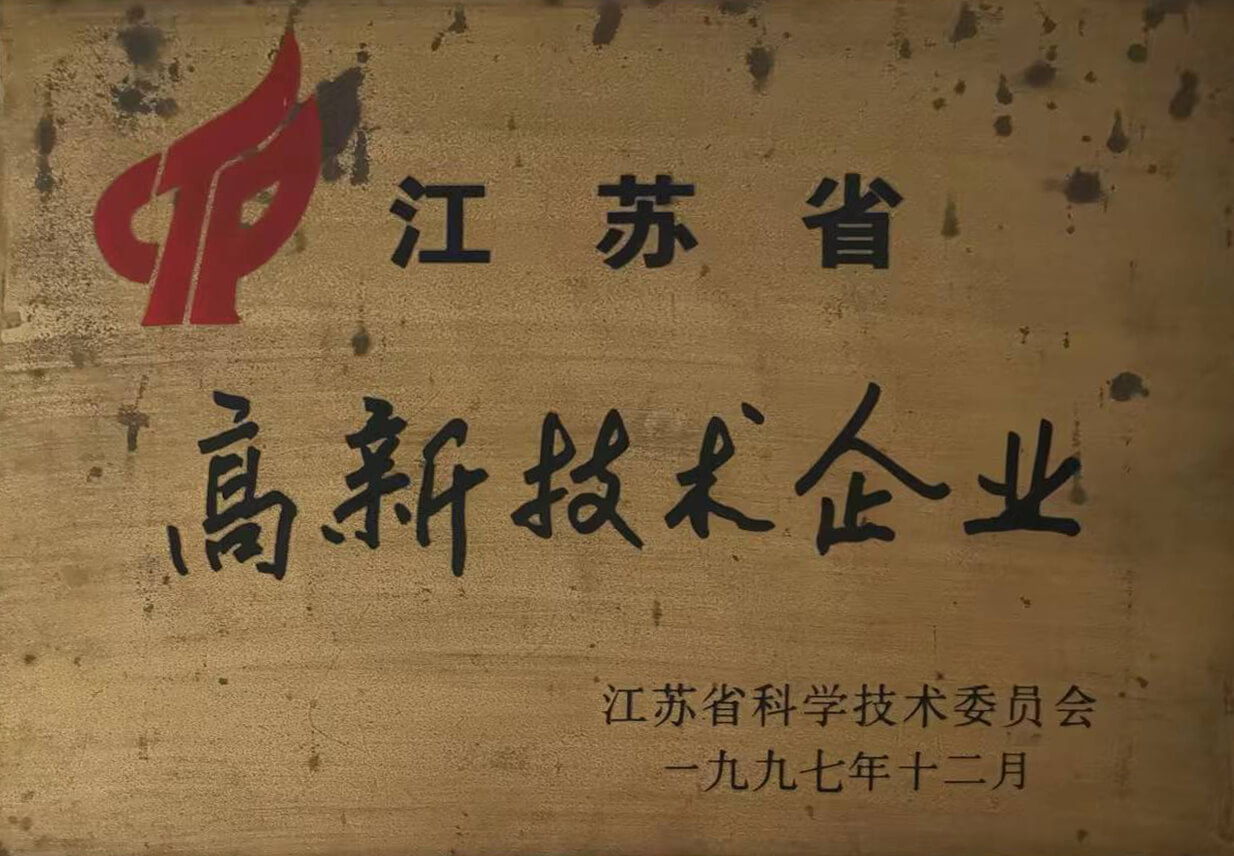 江苏省
高新技术企业
江苏省科学技术委员会
一九九七年十二月